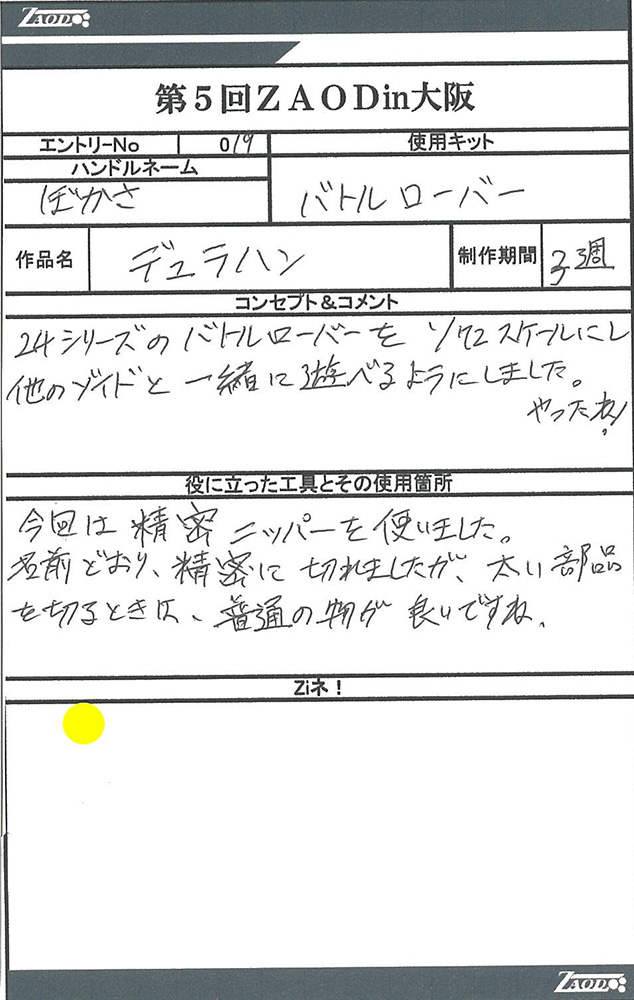 ZAOD
第5回ZAODin大阪
エントリ-No 019
使用キット
ハンドルネーム
ぼかさ
バトルローバー
作品名 デュラハン 制作期間 3週
コンセプト&コメント
24シリーズのバトルローバーを 1/72スケールにし
他のゾイドと一緒に遊べるようにしました。
やったね!
役に立った工具とその使用箇所
今回は精密ニッパーを使いました。
名前どおり、精密に切れましたが、太い部品
を切るときは、普通の物が良いですね、
Ziネ!
ZAOD